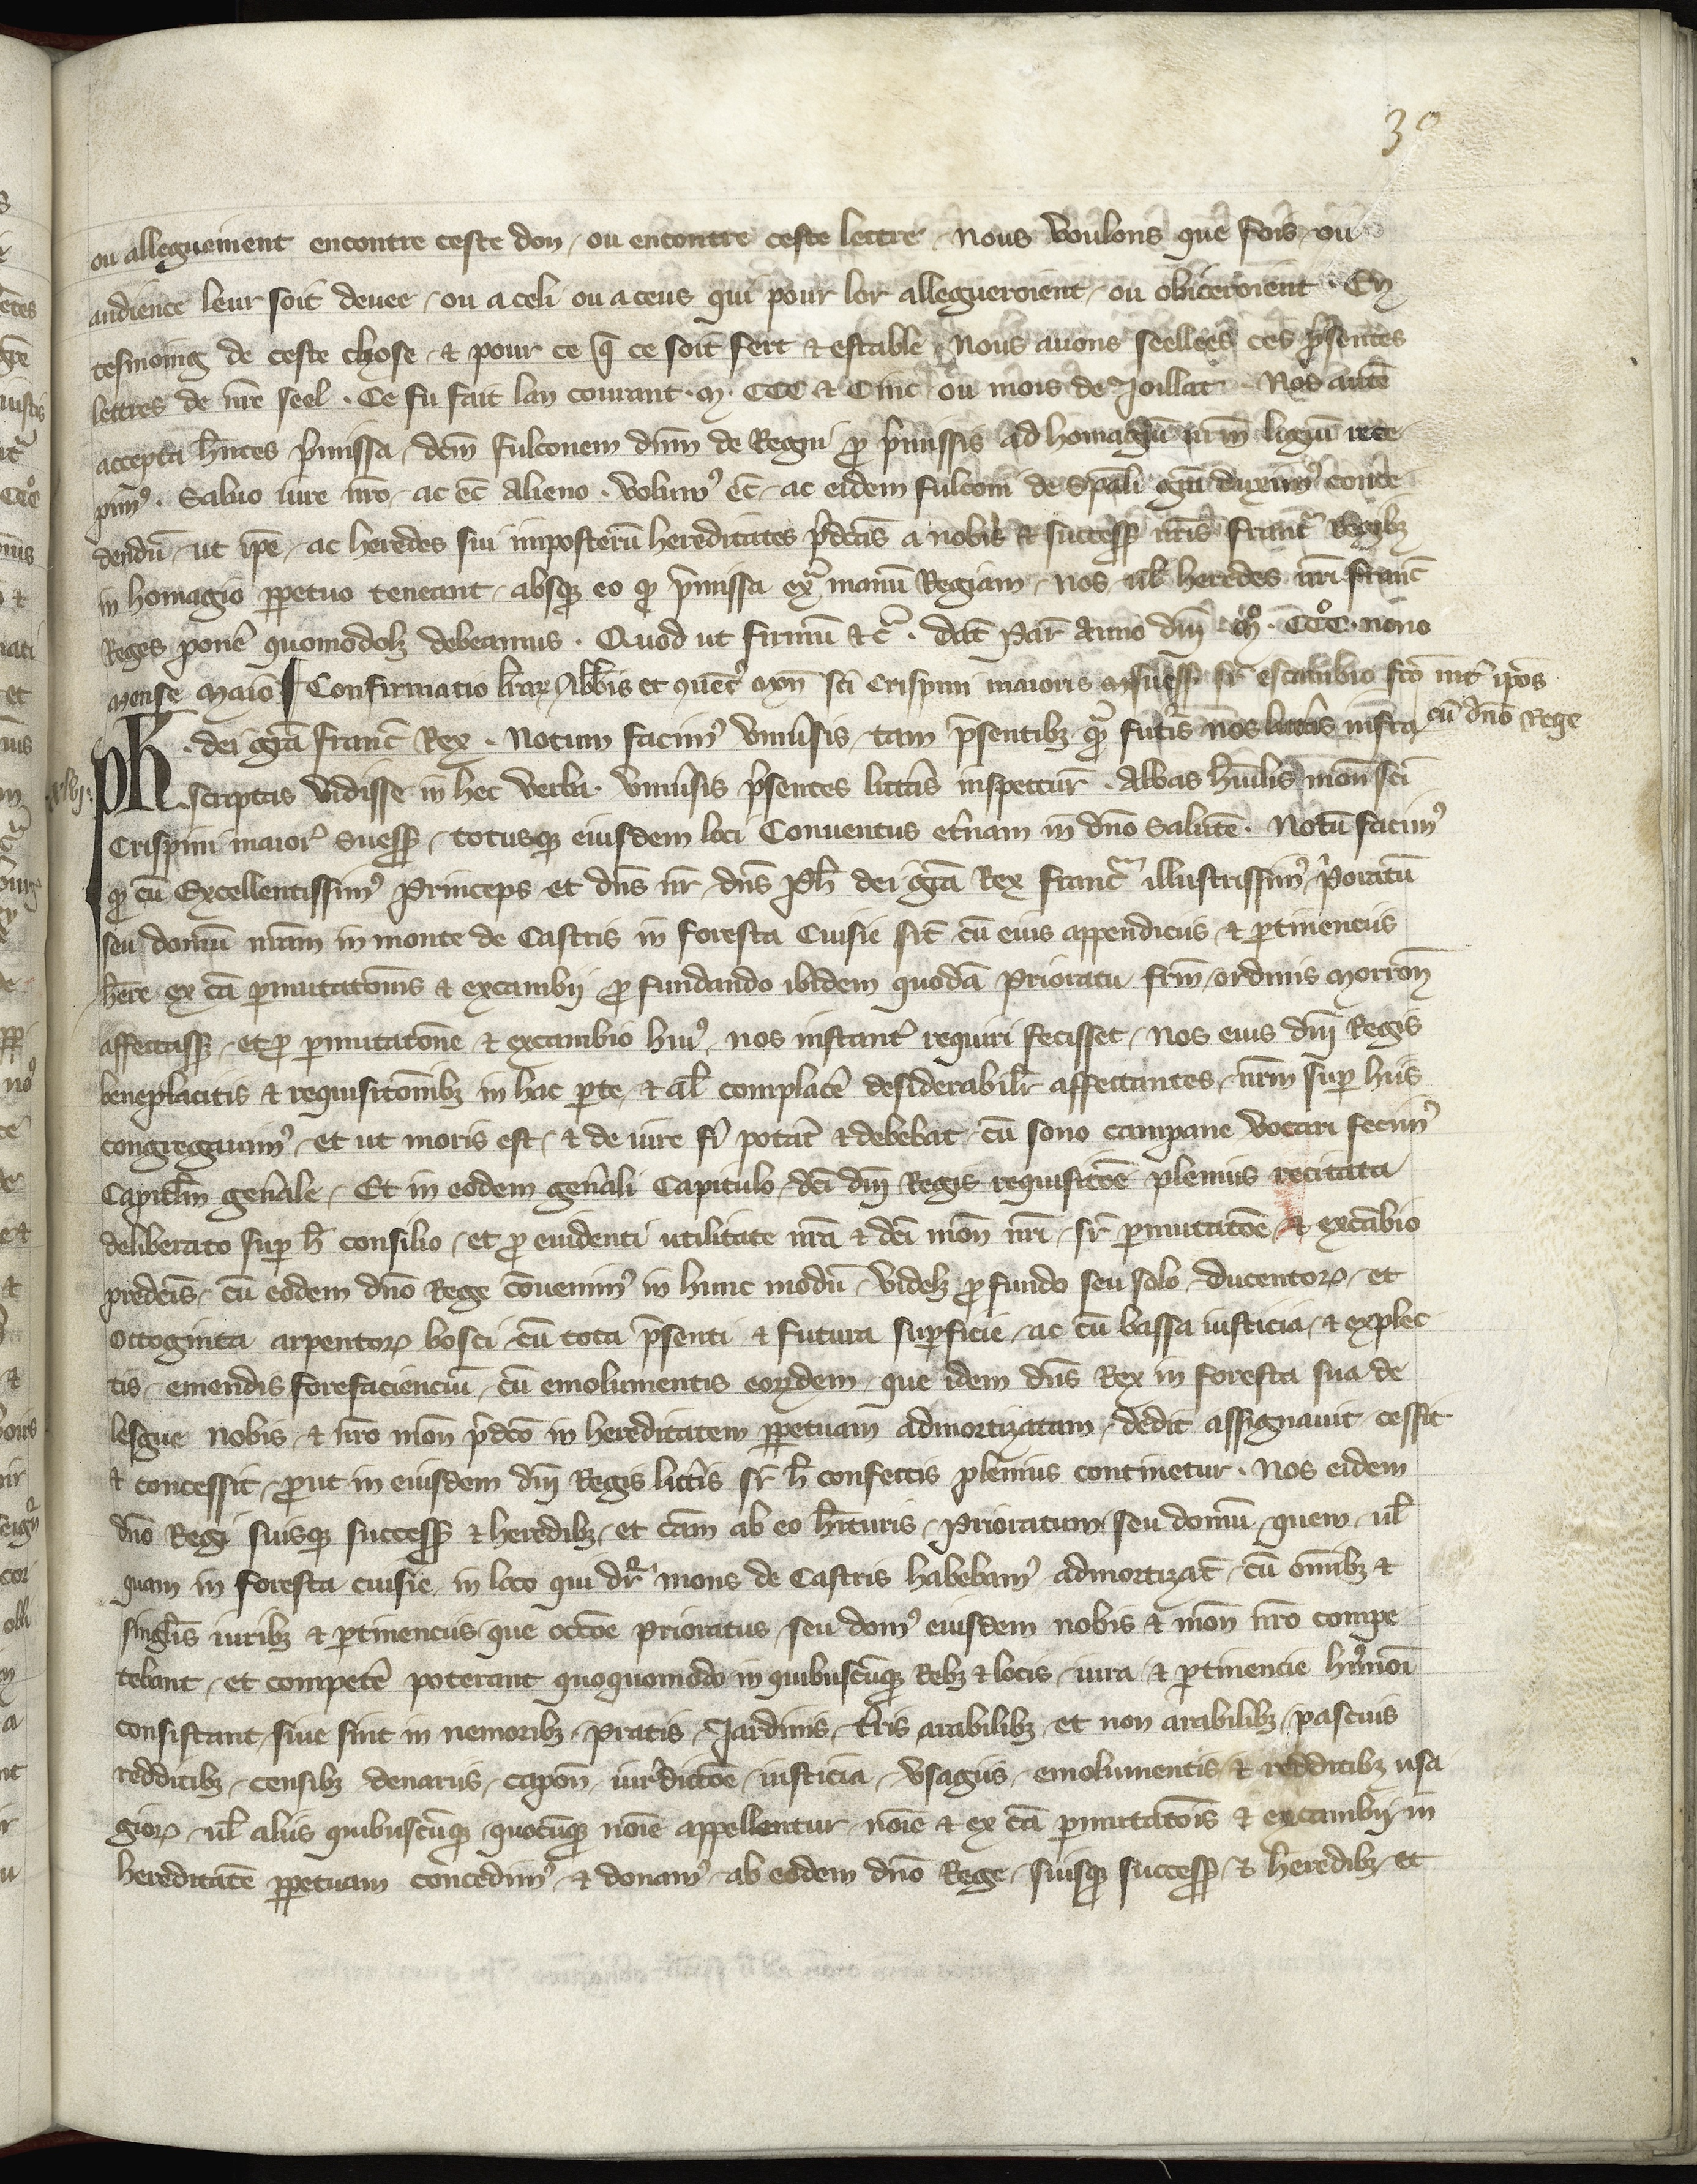 30
ou alleguement encontre ceste don / ou encontre ceste lettre / nous voulons que fois ou
audience leur soit devee / ou a celi ou a ceus qui pour lor allegueroient / ou obiceroient . En
tesmoing de ceste chose & pour ce q̄ ce soit fert & estable / Nous avons seellees ces p̄sentes
lettres de nr̄e seel . Ce fu fait lan courant . M . CCC & Cinc ou mois de Joillat . Nos autē
accepta h̄ntes p̄missa / dcm̄ fulconem dnm̄ de Regni ꝓ p̄missis ad homagiū nr̄m ligiū rece
pim᾿ . Salvo iure nr̄o / ac ec̄ alieno . volum᾿ ec̄ / ac eidem fulconi de sp̄ali gr̄a duxim᾿ conce
dendū / ut ip̄e / ac heredes sui imposterū hereditates p̄dcas̄ a nobis & success̄ nr̄is franc̄ Regibꝫ
in homagio ꝑpetuo teneant / absqꝫ eo ꝙ p̄missa ext̄ manū Regiam / nos ul̄ heredes nr̄i franc̄
Reges pon̄e quomodolꝫ debeamus . Quod ut firmū &c̄ . dat̄ Par̄ Anno dnī . Mº . CCCº . nono
mense Maio ¶ Confirmatio lr̄arꝝ Abb̄is et 9vent᾿ mon̄ sc̄i Crispini maioris suess̄ sr̄ escambio fc̄o int̄ ip̄os
cū dn̄o Rege
xlvj.
Ph . dei gr̄a franc̄ Rex . Notum facim᾿ univ̄sis / tam p̄sentibꝫ qᵃ̄ᷓ fut̄is nos litt̄as infra
scriptas vidisse in hec verba . Univ̄sis p̄sentes litt̄as inspectur̄ . Abbas hūilis mon̄ sc̄i
Crispini maior̄ suess̄ / totusqꝫ eiusdem loci Conventus et̄nam in dn̄o salutē . Notū facim᾿
ꝙ cū Excellentissim᾿ Princeps et dn̄s nr̄ dn̄s Ph̄ dei gr̄a Rex franc̄ illustrissim᾿ p̄oratū
seu domū nr̄am in monte de Castris in foresta Cuisie sit̄ cū eius appendiciis & ꝑtinenciis
h̄ere ex cā ꝑmutatōnis & excambij ꝓ fundando ibidem quodā Prioratu frm̄ ordinis Morron̄
affectass̄ / et ꝓ ꝑmutatōne & excambio hui᾿ / nos instant̄ requiri fecisset / Nos eius dnī Regis
beneplacitis & requisitōnibꝫ in hac ꝑte & al̄ complac̄e desiderabilr̄ affectantes / nr̄m suꝑ hiis
congregavim᾿ / et ut moris est / & de iure fi᾿ potat̄ & debebat / cū sono campane vocari fecim᾿
Capitlm̄ gen̄ale / Et in eodem gen̄ali Capitulo / dc̄i dnī Regis requisitōe plenius recitata
deliberato suꝑ h̄ consilio / et ꝓ evidenti utilitate nr̄a & dc̄i mon̄ nr̄i / sr̄ ꝑmutatōe & excābio
predcīs / cū eodem dn̄o Rege convenim᾿ in hunc modū / videlꝫ ꝓ fundo seu solo ducentorꝝ / et
octoginta arpentorꝝ bosci cū tota p̄senti & futura suꝑficie / ac cū bassa iusticia / & explec
tis / emendis forefacienciū / cū emolumentis eorꝝdem / que idem dn̄s Rex in foresta sua de
lesgue nobis & nr̄o mon̄ p̄dc̄o in hereditatem ꝑpetuam admortizatam / dedit assignavit cessit
& concessit / ꝓut in eiusdem dnī Regis litt̄is sr̄ h̄ confectis plenius continetur . Nos eidem
dn̄o Regi suisqꝫ success̄ & heredibꝫ / et cām ab eo h̄ituris / Prioratum seu domū quem ul̄
quam in foresta cuisie in loco qui dr̄ mons de Castris habebam᾿ admortizat̄ / cū omībꝫ &
singl̄is iuribꝫ & ꝑtinenciis que occōe prioratus / seu dom᾿ eiusdem nobis & mon̄ nr̄o compe
tebant / et compet̄e poterant quoquomodo in quibuscūqꝫ Rebꝫ & locis / iura & ꝑtinencie hmōi
consistant / sive sint in nemoribꝫ / pratis / Jardinis / t̄ris arabilibꝫ et non arabilibꝫ / pascuis
redditibꝫ / censibꝫ denariis / capon̄ / iur̄dictōe / iusticia / Usagiis / emolumentis & redditibꝫ usa
giorꝝ / ul̄ aliis quibuscūqꝫ / quocūqꝫ noīe appellentur / noīe & ex cā ꝑmutatōis & excambij in
hereditatē ꝑpetuam concedim᾿ / & donam᾿ / ab eodem dn̄o Rege / suisqꝫ success̄ / & heredibꝫ / et